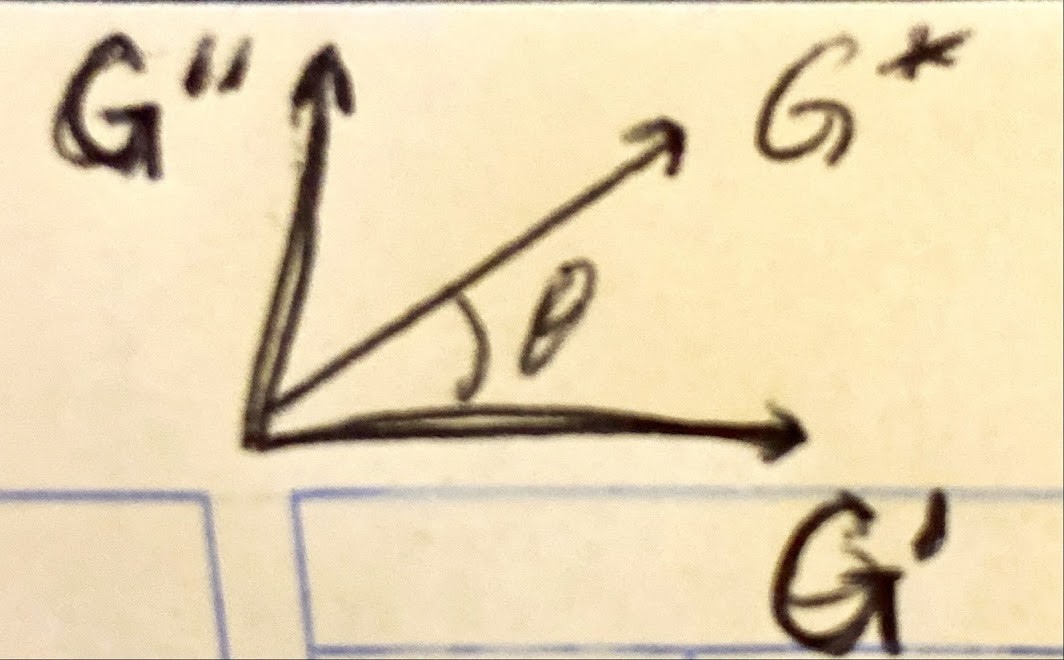 G" G*
θ
G'